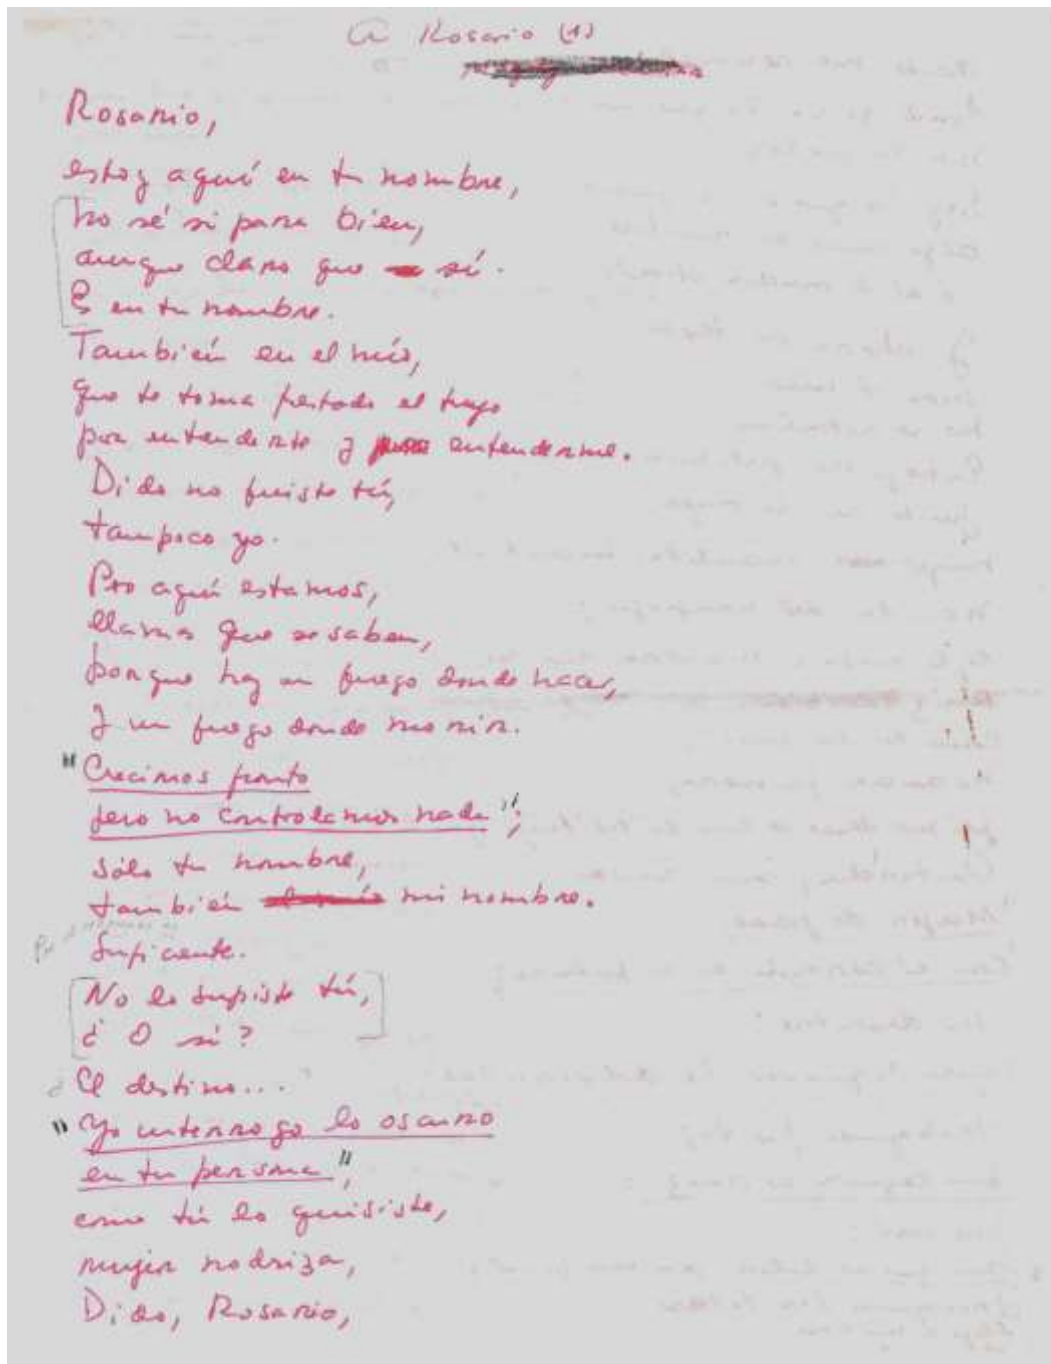 A Rosario (1)
Rosario,
estoy aquí en tu nombre,
no sé si para bien,
aunque claro que sí.
Es en tu nombre.
También en el mío,
que te toma prestado el tuyo
por entenderte y entenderme.
Dido no fuiste tú,
tampoco yo.
Pero aquí estamos,
llamas que se saben,
porque hay un fuego donde nacer,
y un fuego donde morir.
"Crecimos pronto
pero no controlamos nada";
sólo tu nombre,
también mi nombre.
Suficiente.
No lo supiste tú,
¿O sí?
¿El destino...
"Yo interrogo lo oscuro
en tu persona",
como tú lo quisiste,
mujer nodriza,
Dido, Rosario,